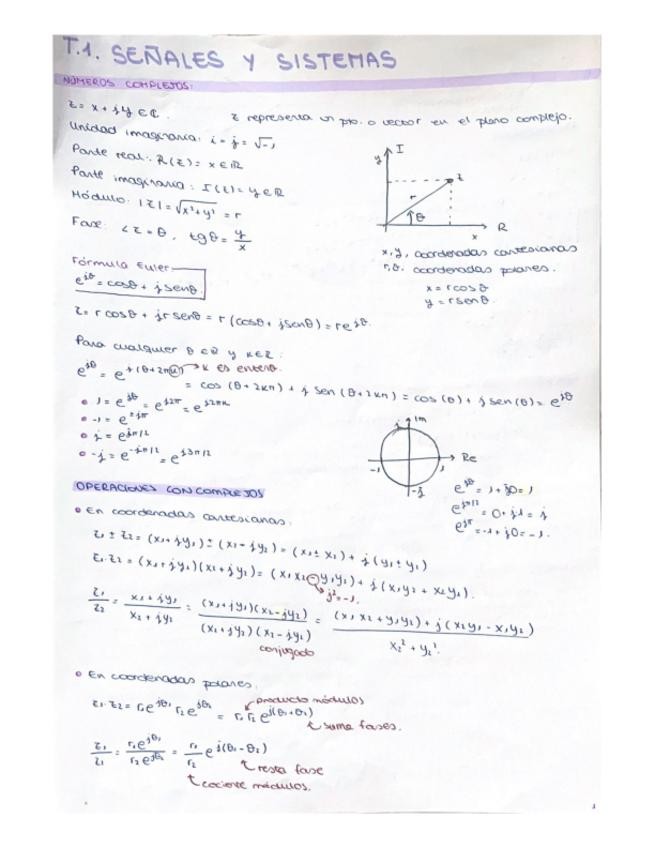 T.1. SEÑALES Y SISTEMAS
NÚMEROS COMPLEJOS:
z = x + jy ∈ ℂ. z representa un pto. o vector en el plano complejo.
Unidad imaginaria: i = j = √-1
Parte real: R(z) = x ∈ ℝ
Parte imaginaria: I(z) = y ∈ ℝ
Módulo: |z| = √x²+y² = r
Fase: ∠z = θ, tg θ = y/x
I
y
z
r
θ
R
x
x, y, coordenadas cartesianas
r, θ. coordenadas polares.
x = r cos θ
y = r sen θ
Fórmula Euler
e^jθ = cos θ + j sen θ
z = r cos θ + jr sen θ = r (cos θ + j sen θ) = re^jθ.
Para cualquier θ ∈ ℝ y k ∈ ℤ:
e^jθ = e^j(θ+2πk) → k es entero.
= cos (θ + 2kπ) + j sen (θ + 2kπ) = cos (θ) + j sen (θ) = e^jθ
• 1 = e^j0 = e^j2π = e^j2πk
• -1 = e^±jπ
• j = e^jπ/2
• -j = e^-jπ/2 = e^j3π/2
Im
j
Re
-1
1
-j
e^j0 = 1 + j0 = 1
e^jπ/2 = 0 + j1 = j
e^jπ = -1 + j0 = -1.
OPERACIONES CON COMPLEJOS
• En coordenadas cartesianas:
z₁ ± z₂ = (x₁ + jy₁) ± (x₂ + jy₂) = (x₁ ± x₂) + j (y₁ ± y₂)
z₁ · z₂ = (x₁ + jy₁)(x₂ + jy₂) = (x₁x₂ - y₁y₂) + j (x₁y₂ + x₂y₁).
j² = -1.
z₁/z₂ = x₁ + jy₁ / x₂ + jy₂ = (x₁ + jy₁)(x₂ - jy₂) / (x₂ + jy₂)(x₂ - jy₂) = (x₁x₂ + y₁y₂) + j (x₂y₁ - x₁y₂) / x₂² + y₂².
conjugado
• En coordenadas polares:
producto módulos
z₁ · z₂ = r₁e^jθ₁ r₂e^jθ₂ = r₁ r₂ e^j(θ₁+θ₂)
suma fases.
z₁/z₂ = r₁e^jθ₁ / r₂e^jθ₂ = r₁/r₂ e^j(θ₁-θ₂)
resta fase
cociente módulos.
1